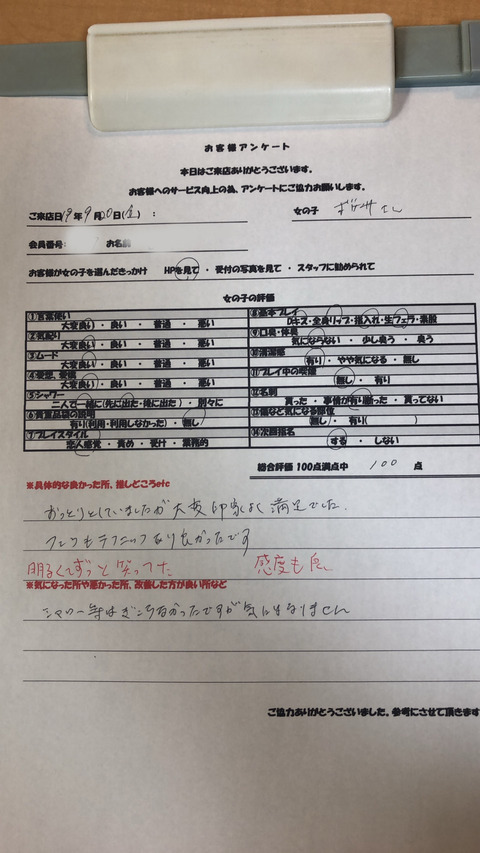 お客様アンケート
本日はご来店ありがとうございます。
お客様へのサービス向上の為、アンケートにご協力お願いします。
ご来店日 19年 9月20日(金) : 女の子 さん
会員番号: お名前
お客様が女の子を選んだきっかけ HPを見て ・ 受付の写真を見て ・ スタッフに勧められて
女の子の評価
①言葉使い
大変良い ・ 良い ・ 普通 ・ 悪い
②気配り
大変良い ・ 良い ・ 普通 ・ 悪い
③ムード
大変良い ・ 良い ・ 普通 ・ 悪い
④愛想、愛嬌
大変良い ・ 良い ・ 普通 ・ 悪い
⑤シャワー
二人で一緒に(先に出た・後に出た) ・ 別々に
⑥貴重品袋の説明
有り(利用・利用しなかった) ・ 無し
⑦プレイスタイル
恋人感覚 ・ 責め ・ 受け ・ 業務的
⑧基本プレイ
Dキス・全身リップ・指入れ・生フェラ・素股
⑨口臭・体臭
気にならない ・ 少し臭う ・ 臭う
⑩清潔感
有り ・ やや気になる ・ 無し
⑪プレイ中の喫煙
無し ・ 有り
⑫名刺
貰った ・ 事情が有り断った ・ 貰ってない
⑬傷など気になる部位
無し ・ 有り( )
⑭次回指名
する ・ しない
総合評価 100点満点中 100 点
※具体的な良かった所、推しどころetc
おっとりとしていましたが大変印象よく満足でした.
フェラもテクニックあり良かったです
明るくてずっと笑ってた 感度も良い
※気になった所や悪かった所、改善した方が良い所など
シャワー等はぎこちなかったですが気になりません
ご協力ありがとうございました。参考にさせて頂きます